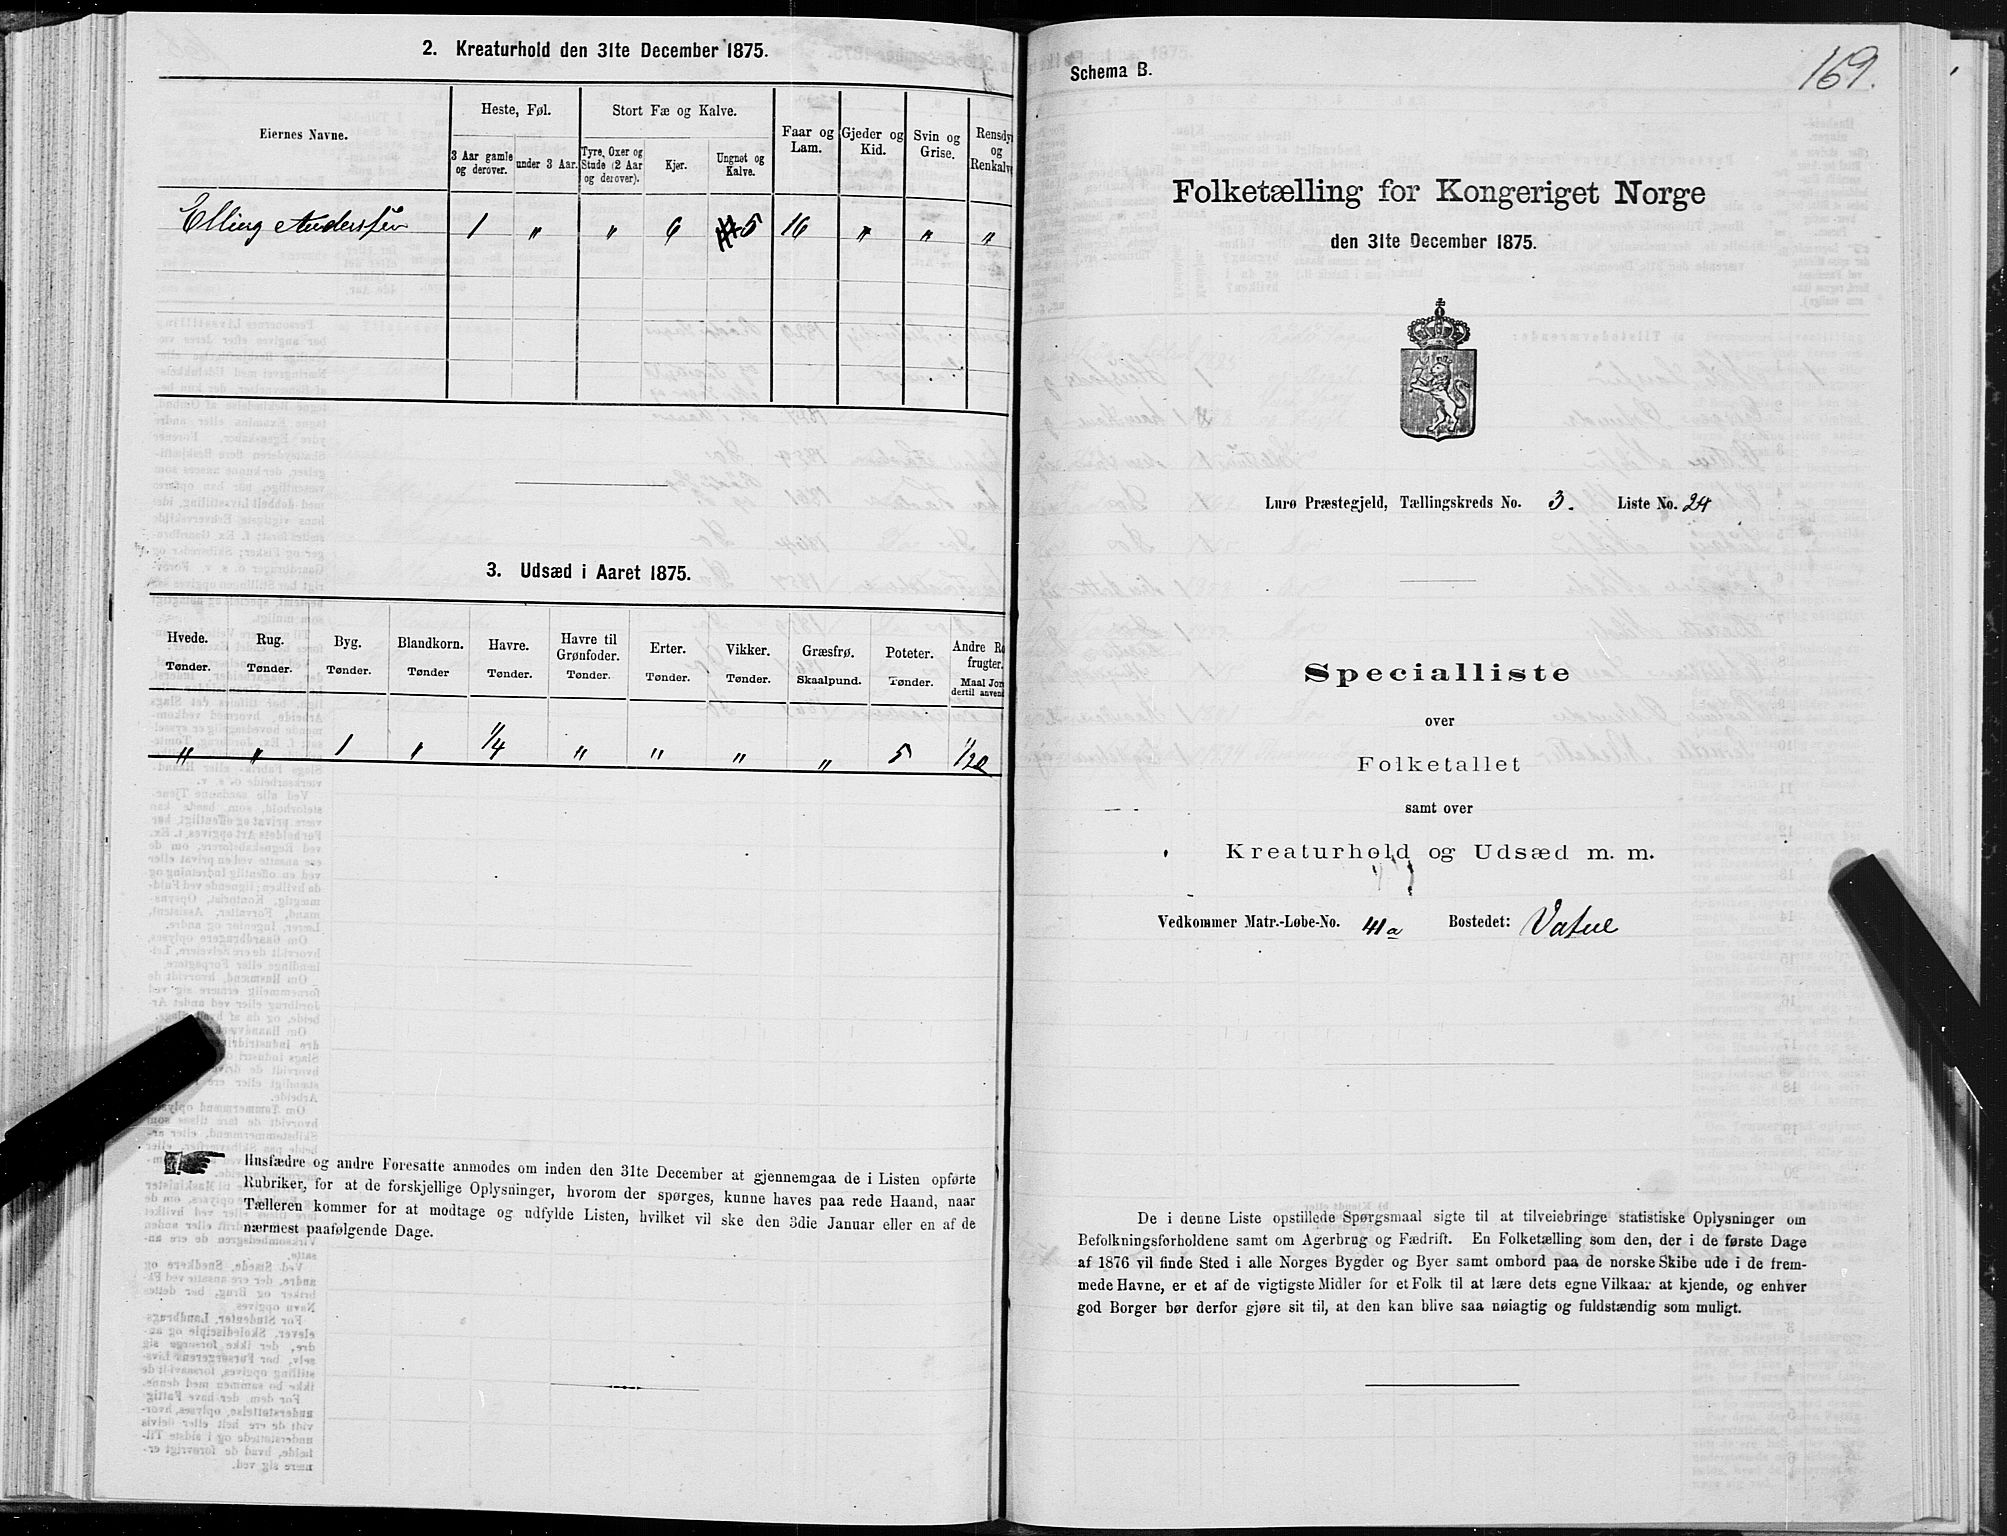 2. Kreaturhold den 31te December 1875.
Eiernes Navne.
Heste, Føl.
Stort Fæ og Kalve.
Faar og Lam.
Gjeder og Kid.
Svin og Grise.
Rensdyr og Renkalve
3 Aar gamle og derover.
under 3 Aar.
Tyre, Oxer og Stude (2 Aar og derover).
Kjør.
Ungnøt og Kalve.
Elling Anderssen 1 " " 6 5 16 " " "
3. Udsæd i Aaret 1875.
Hvede. Rug. Byg. Blandkorn. Havre. Havre til Grønfoder. Erter. Vikker. Græsfrø. Poteter. Andre Ro frugter.
Tønder. Tønder. Tønder. Tønder Tønder. Tønder. Tønder. Tønder. Skaalpund. Tønder. Maal Jor dertil anvend
" " 1 " 1/4 " " " " 5 1/20
Husfædre og andre Foresatte anmodes om inden den 31te December at gjennemgaa de i Listen opførte
Rubriker, for at de forskjellige Oplysninger, hvorom der spørges, kunne haves paa rede Haand, naar
Tælleren kommer for at modtage og udfylde Listen, hvilket vil ske den 3die Januar eller en af de
nærmest paafølgende Dage.
169.
Schema B.
Folketælling for Kongeriget Norge
den 31te December 1875.
Lurø Præstegjeld, Tællingskreds No. 3. Liste No. 24
Specialliste
over
Folketallet
samt over
Kreaturhold og Udsæd m. m.
Vedkommer Matr.-Løbe-No. 41a Bostedet:
De i denne Liste opstillede Spørgsmaal sigte til at tilveiebringe statistiske Oplysninger om
Befolkningsforholdene samt om Agerbrug og Fædrift. En Folketælling som den, der i de første Dage
af 1876 vil finde Sted i alle Norges Bygder og Byer samt ombord paa de norske Skibe ude i de frem-
mede Havne, er et af de vigtigste Midler for et Folk til at lære dets egne Vilkaar at kjende, og enhver
god Borger bør derfor gjøre sit til, at den kan blive saa nøiagtig og fuldstændig som muligt.